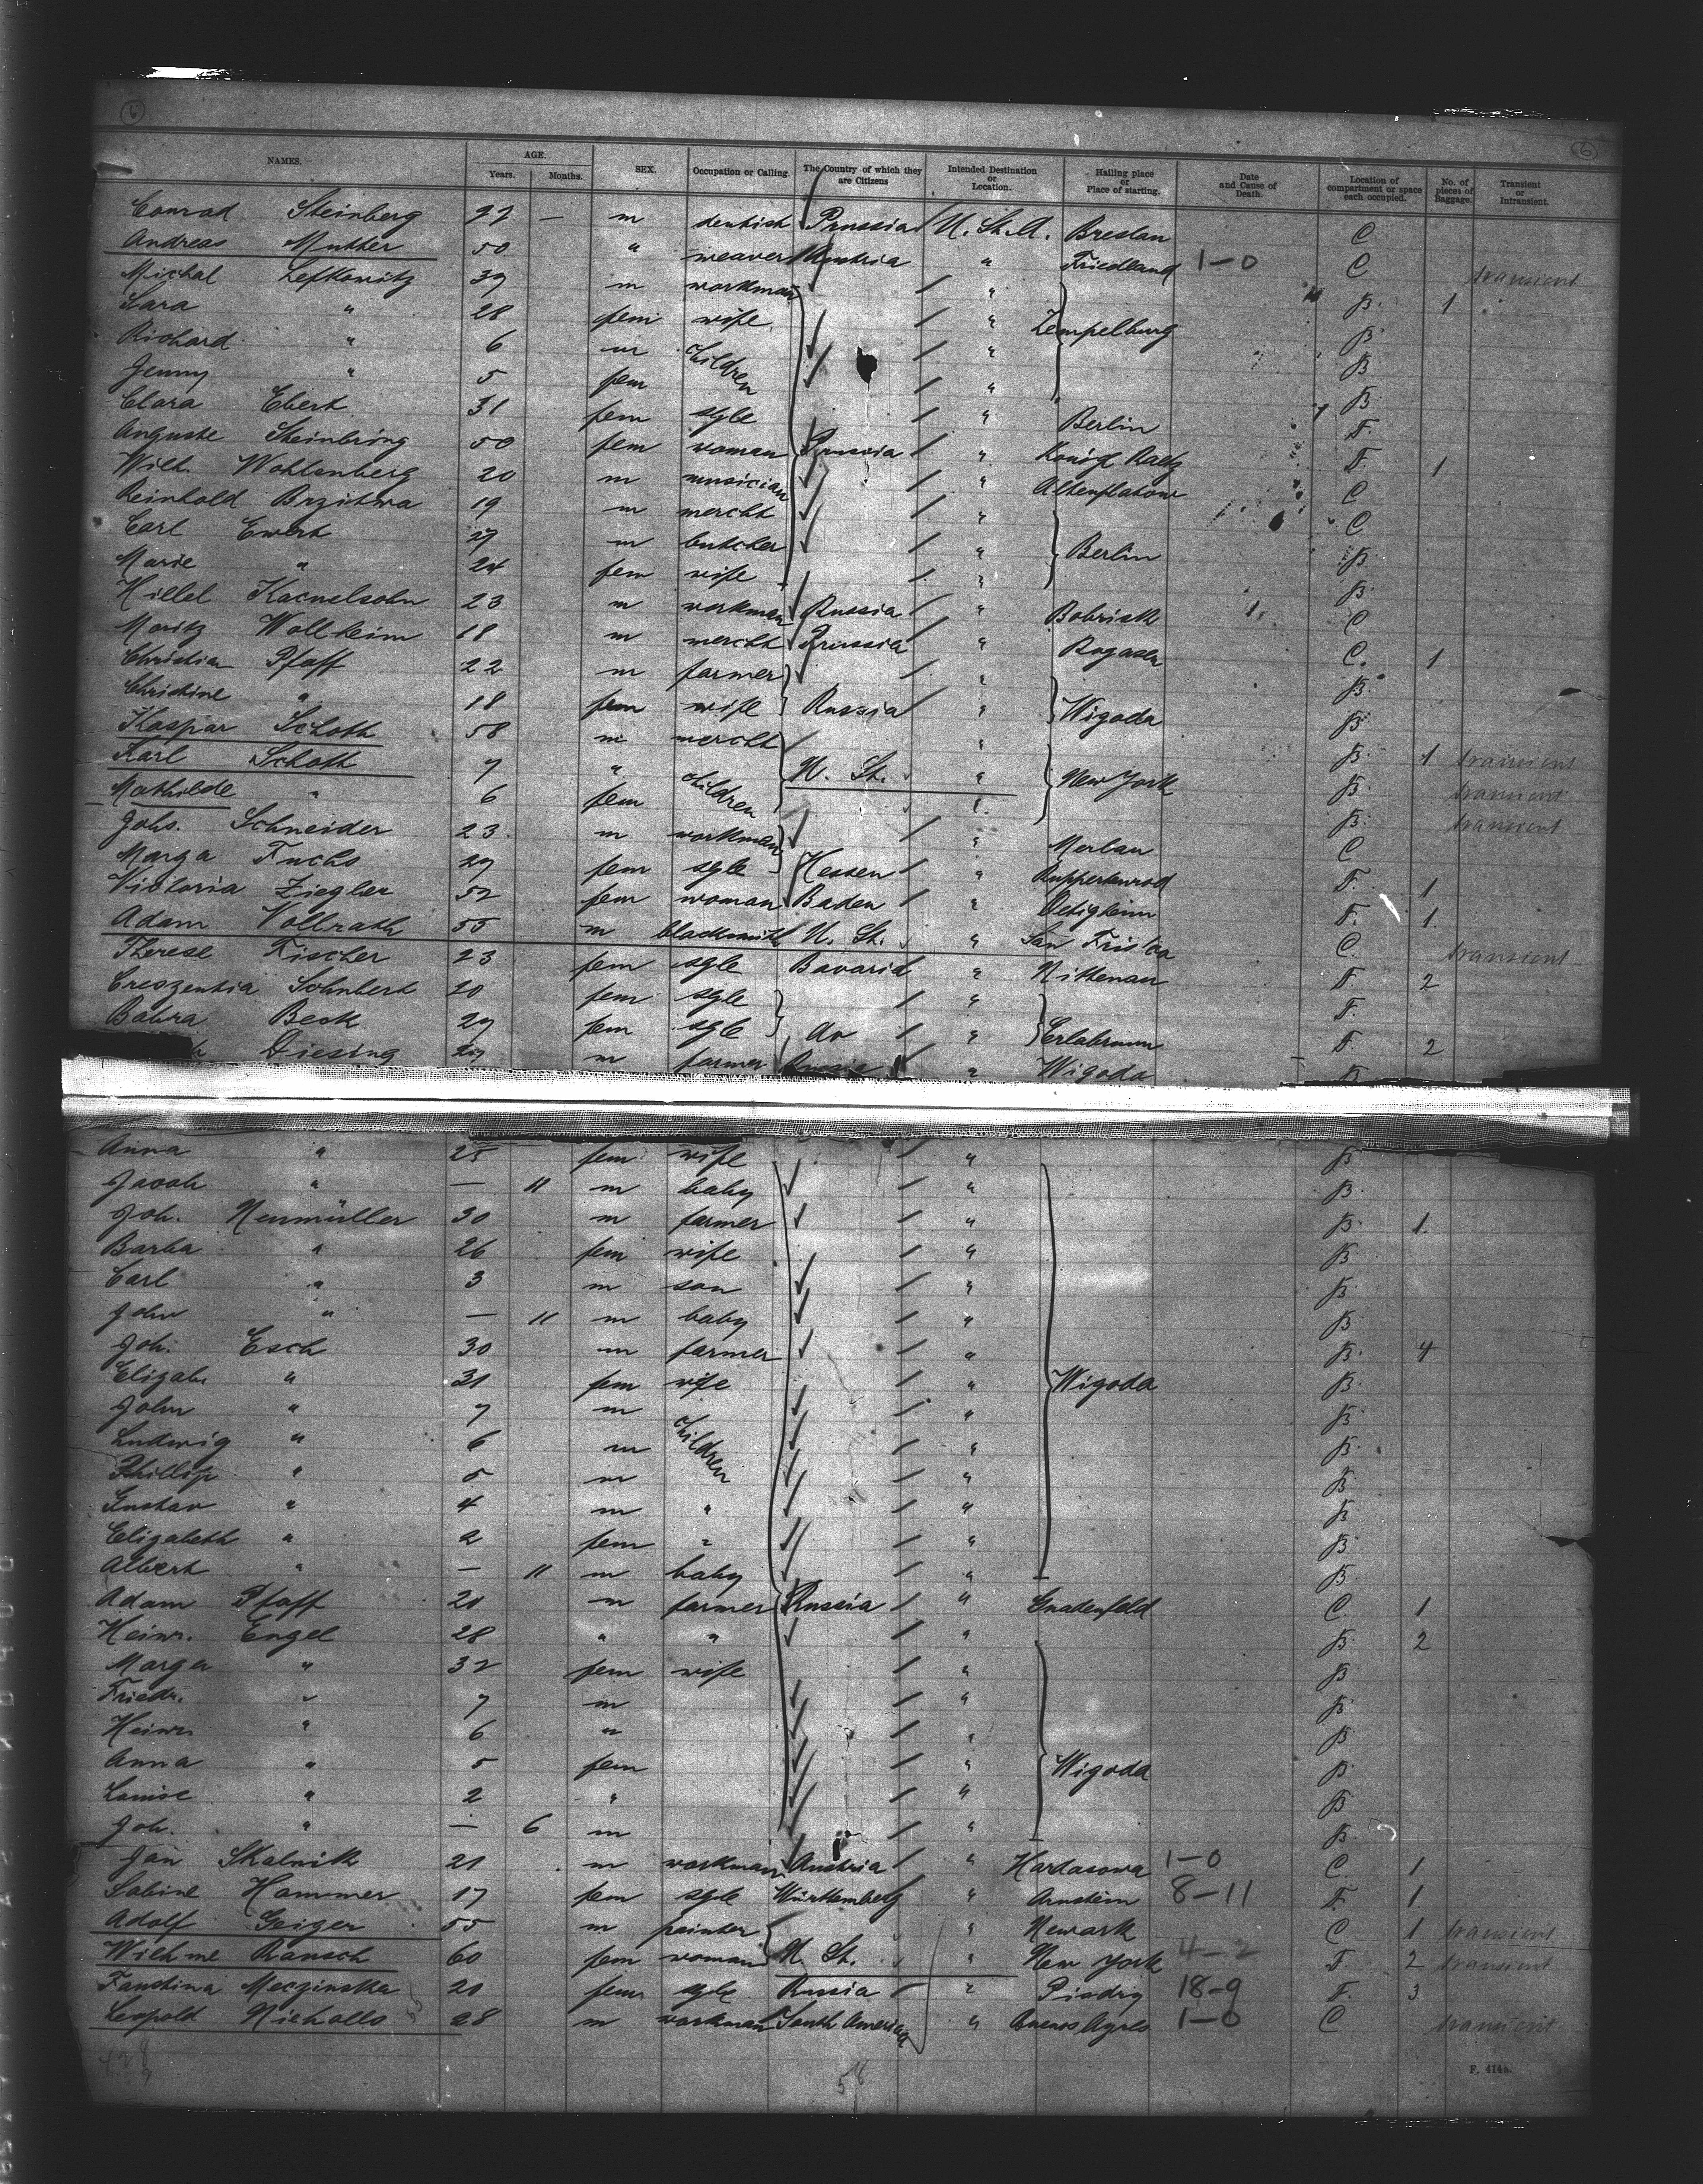 6 6
NAMES. AGE. Years. Months. SEX. Occupation or Calling. The Country of which they are Citizens Intended Destination or Location. Hailing place or Place of starting. Date and Cause of Death. Location of compartment or space each occupied. No. of pieces of Baggage. Transient or Intransient.
Conrad Steinberg 27 — m dentist Prussia U. St. A. Breslau C
Andreas Muther 50 " weaver Austria " Friedland 1-0 C transient
Michal Lefkowitz 39 m workman " B. 1
Sara " 28 fem wife " Zempelburg B
Richard " 6 m children " B
Jenny " 5 fem " B
Clara Ebert 31 fem sgle " Berlin F.
Auguste Steinbring 50 fem woman Prussia " F. 1
Wilh. Wohlenberg 20 m musician " Altenplatow C
Reinhold 19 m mercht " C
Carl Ewert 27 m butcher " Berlin B
Marie " 24 fem wife " B.
Hillel Kacnelsohn 23 m workman Russia " Bobrisk C
Moritz Wollheim 18 m mercht Prussia " Rogasen C. 1
Christian Pfaff 22 m farmer " B.
Christine " 18 fem wife Russia " Wigoda B
Kaspar Schoth 58 m mercht " B. 1 transient
Karl Schoth 7 " children U. St. " New York B. transient
Mathilde " 6 fem " B. transient
Johs. Schneider 23 m workman " Merlau C
Marga Fuchs 27 fem sgle Hessen " Ruppertenrod F. 1
Victoria Ziegler 52 fem woman Baden " Oetigheim F. 1
Adam Vollrath 55 m blacksmith U. St. " San Frisko C. transient
Therese Fischer 23 fem sgle Bavaria " Nittenau F. 2
Creszentia Schubert 20 fem sgle " F.
Babra Beck 27 fem sgle do " Erlabrunn F. 2
Diesing 27 m farmer Russia " Wigoda B
Anna " 25 fem wife " B
Jacob " — 11 m baby " B.
Joh. Neumüller 30 m farmer " B. 1.
Barba " 26 fem wife " B
Carl " 3 m son " B.
John " — 11 m baby " B
Joh. Esch 30 m farmer " B. 4
Elizabe " 31 fem wife " Wigoda B.
John " 7 m " B.
Ludwig " 6 m children " B.
Phillip " 5 m " B.
Gustav " 4 m " " B
Elizabeth " 2 fem " " B.
Albert " — 11 m baby " B.
Adam Pfaff 20 m farmer Russia " Gnadenfeld C. 1
Heinr. Engel 28 " " " B. 2
Marga " 32 fem wife " B
Friedr. " 7 m " B.
Heinr. " 6 " " B
Anna " 5 fem " Wigoda B.
Louise " 2 " " B
Joh. " — 6 m " B.
Jan Skalnik 21 m workman Austria " Hartasowa 1-0 C. 1
Sabine Hammer 17 fem sgle Württemberg " Arnstein 8-11 F. 1
Adolf Geiger 55 m painter " Newark C 1 transient
Wilhme Rausch 60 fem woman U. St. " New York 4-2 F. 2 transient
Faustina Meczinska 20 fem sgle Russia " Pisdry 18-9 F. 3
Leopold Nicholls 28 m workman South America " Buenos Ayres 1-0 C transient
58
F. 414a.